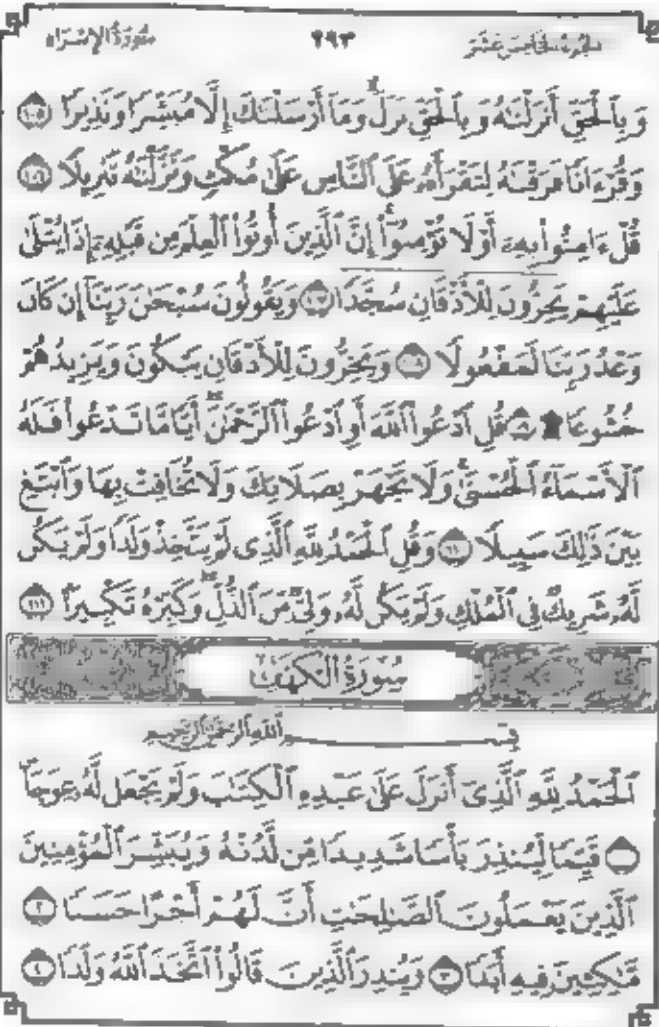 سُورَةُ الإِسْرَاءِ ٢٩٣ الجُزْءُ الخَامِسَ عَشَرَ
وَبِٱلْحَقِّ أَنزَلْنَٰهُ وَبِٱلْحَقِّ نَزَلَ ۗ وَمَآ أَرْسَلْنَٰكَ إِلَّا مُبَشِّرًا وَنَذِيرًا ١٠٥
وَقُرْءَانًا فَرَقْنَٰهُ لِتَقْرَأَهُۥ عَلَى ٱلنَّاسِ عَلَىٰ مُكْثٍ وَنَزَّلْنَٰهُ تَنزِيلًا ١٠٦
قُلْ ءَامِنُوا۟ بِهِۦٓ أَوْ لَا تُؤْمِنُوٓا۟ ۚ إِنَّ ٱلَّذِينَ أُوتُوا۟ ٱلْعِلْمَ مِن قَبْلِهِۦٓ إِذَا يُتْلَىٰ
عَلَيْهِمْ يَخِرُّونَ لِلْأَذْقَانِ سُجَّدًا ١٠٧ وَيَقُولُونَ سُبْحَٰنَ رَبِّنَآ إِن كَانَ
وَعْدُ رَبِّنَا لَمَفْعُولًا ١٠٨ وَيَخِرُّونَ لِلْأَذْقَانِ يَبْكُونَ وَيَزِيدُهُمْ
خُشُوعًا ۩ ١٠٩ قُلِ ٱدْعُوا۟ ٱللَّهَ أَوِ ٱدْعُوا۟ ٱلرَّحْمَٰنَ ۖ أَيًّا مَّا تَدْعُوا۟ فَلَهُ
ٱلْأَسْمَآءُ ٱلْحُسْنَىٰ ۚ وَلَا تَجْهَرْ بِصَلَاتِكَ وَلَا تُخَافِتْ بِهَا وَٱبْتَغِ
بَيْنَ ذَٰلِكَ سَبِيلًا ١١٠ وَقُلِ ٱلْحَمْدُ لِلَّهِ ٱلَّذِى لَمْ يَتَّخِذْ وَلَدًا وَلَمْ يَكُن
لَّهُۥ شَرِيكٌ فِى ٱلْمُلْكِ وَلَمْ يَكُن لَّهُۥ وَلِىٌّ مِّنَ ٱلذُّلِّ ۖ وَكَبِّرْهُ تَكْبِيرًۢا ١١١
سُورَةُ الكَهْفِ
بِسْمِ ٱللَّهِ ٱلرَّحْمَٰنِ ٱلرَّحِيمِ
ٱلْحَمْدُ لِلَّهِ ٱلَّذِىٓ أَنزَلَ عَلَىٰ عَبْدِهِ ٱلْكِتَٰبَ وَلَمْ يَجْعَل لَّهُۥ عِوَجَا ۜ
١ قَيِّمًا لِّيُنذِرَ بَأْسًا شَدِيدًا مِّن لَّدُنْهُ وَيُبَشِّرَ ٱلْمُؤْمِنِينَ
ٱلَّذِينَ يَعْمَلُونَ ٱلصَّٰلِحَٰتِ أَنَّ لَهُمْ أَجْرًا حَسَنًا ٢
مَّٰكِثِينَ فِيهِ أَبَدًا ٣ وَيُنذِرَ ٱلَّذِينَ قَالُوا۟ ٱتَّخَذَ ٱللَّهُ وَلَدًا ٤